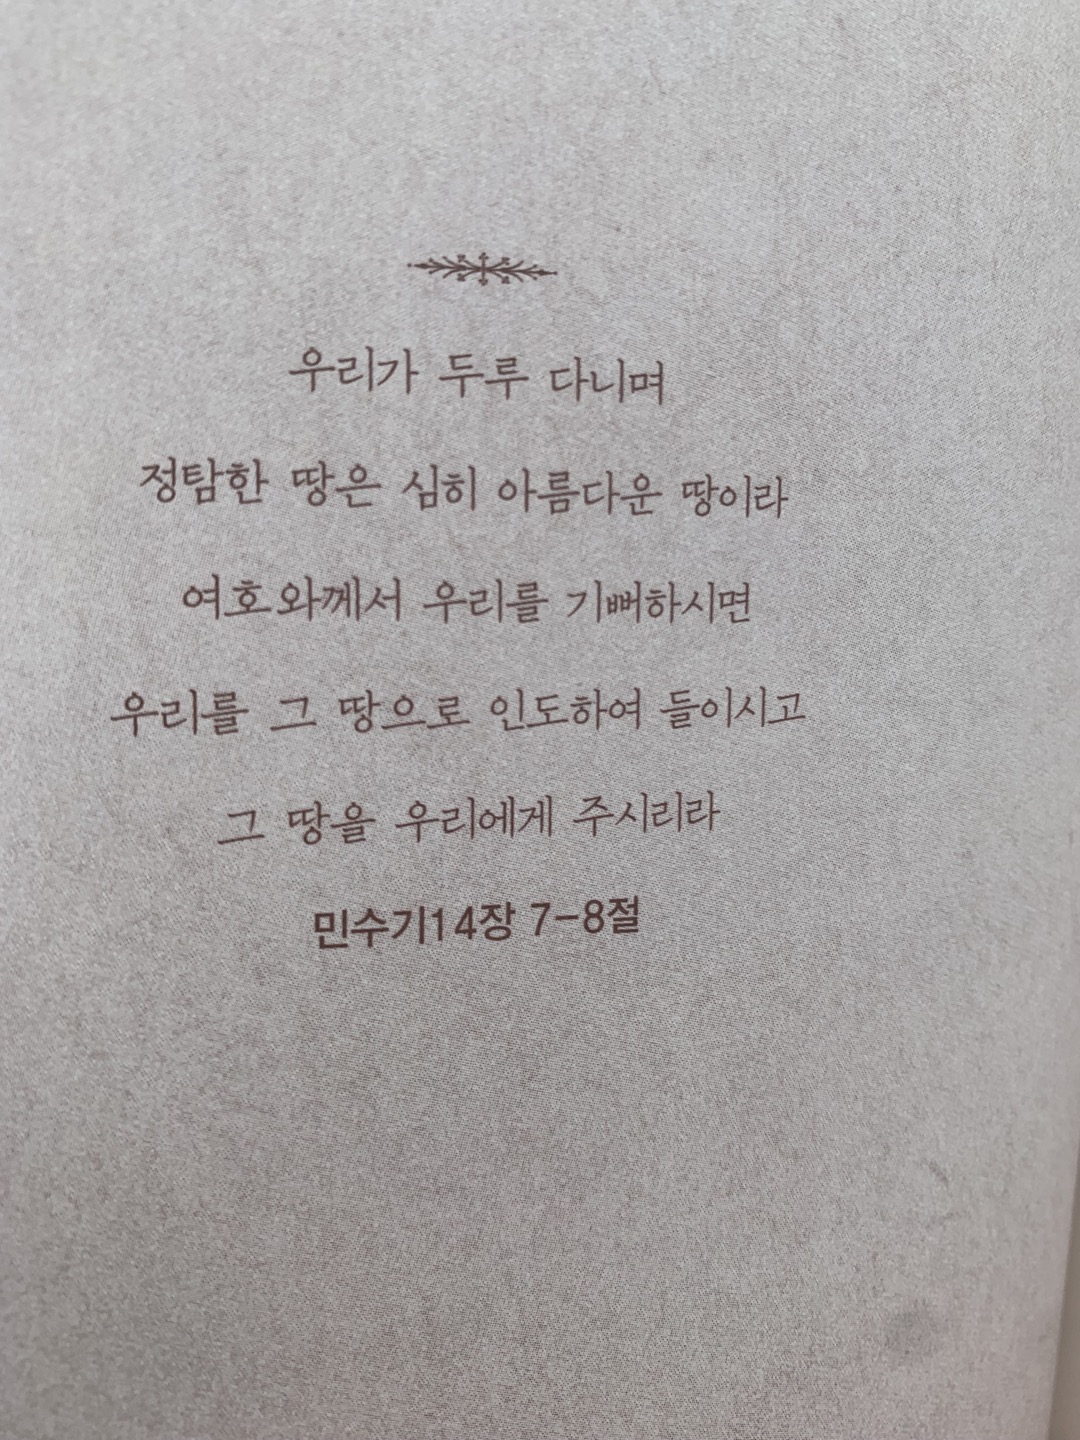 우리가 두루 다니며
정탐한 땅은 심히 아름다운 땅이라
여호와께서 우리를 기뻐하시면
우리를 그 땅으로 인도하여 들이시고
그 땅을 우리에게 주시리라
민수기14장 7-8절